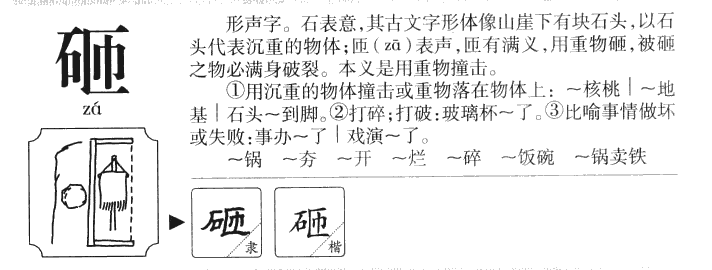 砸
zá
形声字。石表意，其古文字形体像山崖下有块石头，以石
头代表沉重的物体；匝（zā）表声，匝有满义，用重物砸，被砸
之物必满身破裂。本义是用重物撞击。
①用沉重的物体撞击或重物落在物体上：～核桃｜～地
基｜石头～到脚。②打碎；打破：玻璃杯～了。③比喻事情做坏
或失败：事办～了｜戏演～了。
～锅 ～夯 ～开 ～烂 ～碎 ～饭碗 ～锅卖铁
砸 隶
砸 楷